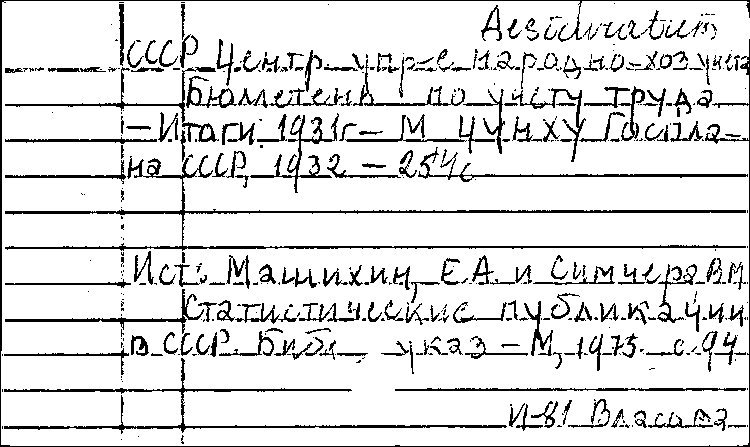 Desideratum
СССР Центр. упр-е народно-хоз учета
Бюллетень по учету труда
- Итоги 1931г - М ЦУНХУ Госпла-
на СССР, 1932 - 254с
Ист: Машихин, Е.А. и Симчера ВМ
Статистические публикации
в СССР. Библ. указ - М, 1975. с 94
И-81 Власова